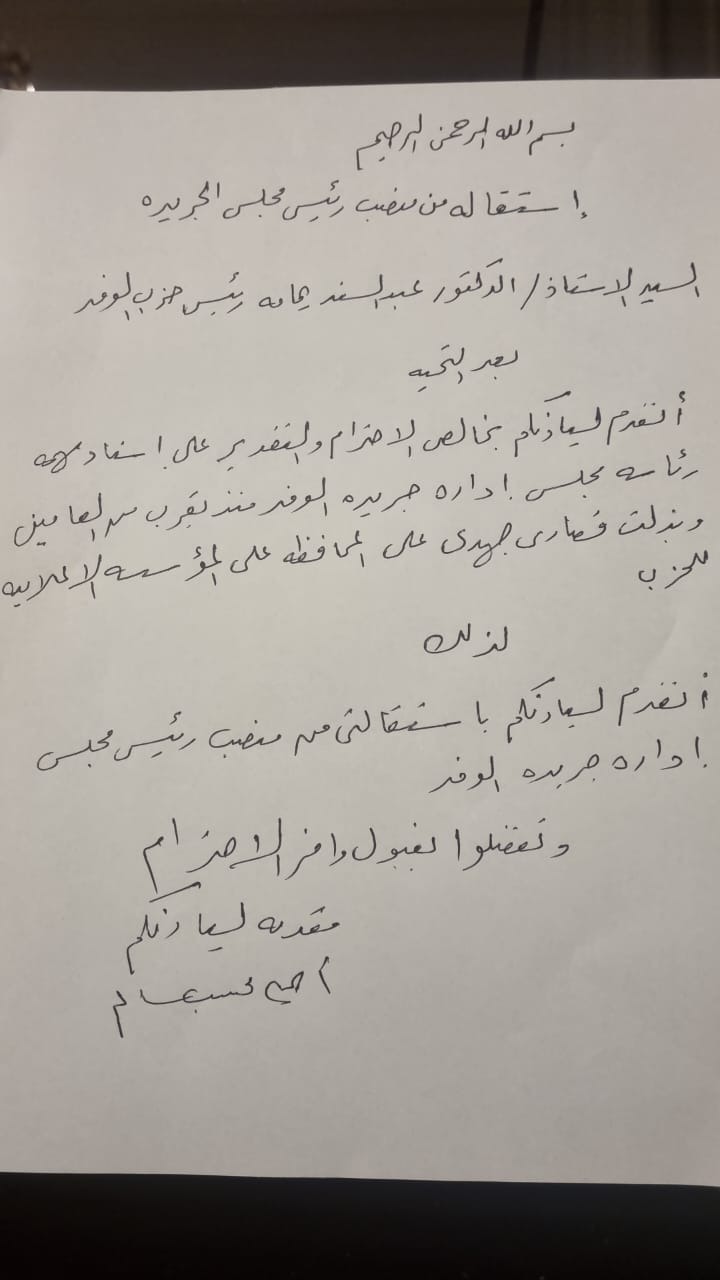 بسم الله الرحمن الرحيم
إستقاله من منصب رئيس مجلس الجريده
السيد الاستاذ / الدكتور عبدالسند يمامه رئيس حزب الوفد
بعد التحيه
أتقدم لسيادتكم بخالص الاحترام والتقدير على إسناد مهمه
رئاسه مجلس إداره جريده الوفد منذ يقرب من العامين
وبذلت قصارى جهدى على المحافظه على المؤسسه الاعلاميه
للحزب
لذلك
أتقدم لسيادتكم باستقالتى من منصب رئيس مجلس
إداره جريده الوفد
وتفضلوا بقبول وافر الاحترام
مقدمه لسيادتكم